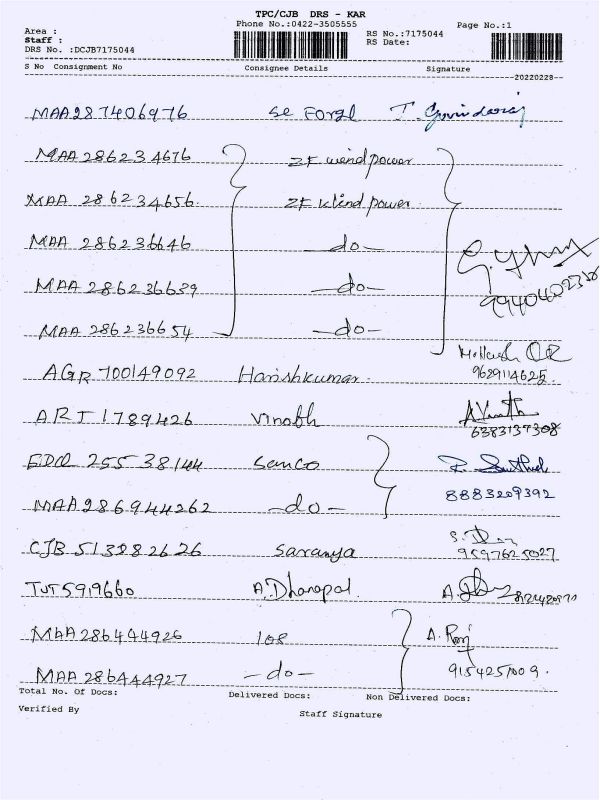 TPC/CJB DRS - KAR
Phone No.:0422-3505555
Page No.:1
Area :
Staff :
DRS No. :DCJB7175044
RS No.:7175044
RS Date:
S No Consignment No Consignee Details Signature
20220228
MAA287406976 Se Forge T. Govindaraj
MAA 286234676 ZF wind power
MAA 286234656 ZF Wind power
MAA 286236646 -do-
MAA 286236639 -do-
MAA 286236654 -do-
AGR 700149092 Harishkumar 9629114625
ART 1789426 Vinobh 6383137308
EDR 25538144 Sanco
MAA286944262 -do- 8883209392
CJB 513282626 Saranya 9597625027
TUT 5919660 A. Dhanapal
MAA286444926 108 A. Raj
MAA 286444927 -do- 9154251009
Total No. Of Docs: Delivered Docs: Non Delivered Docs:
Verified By Staff Signature